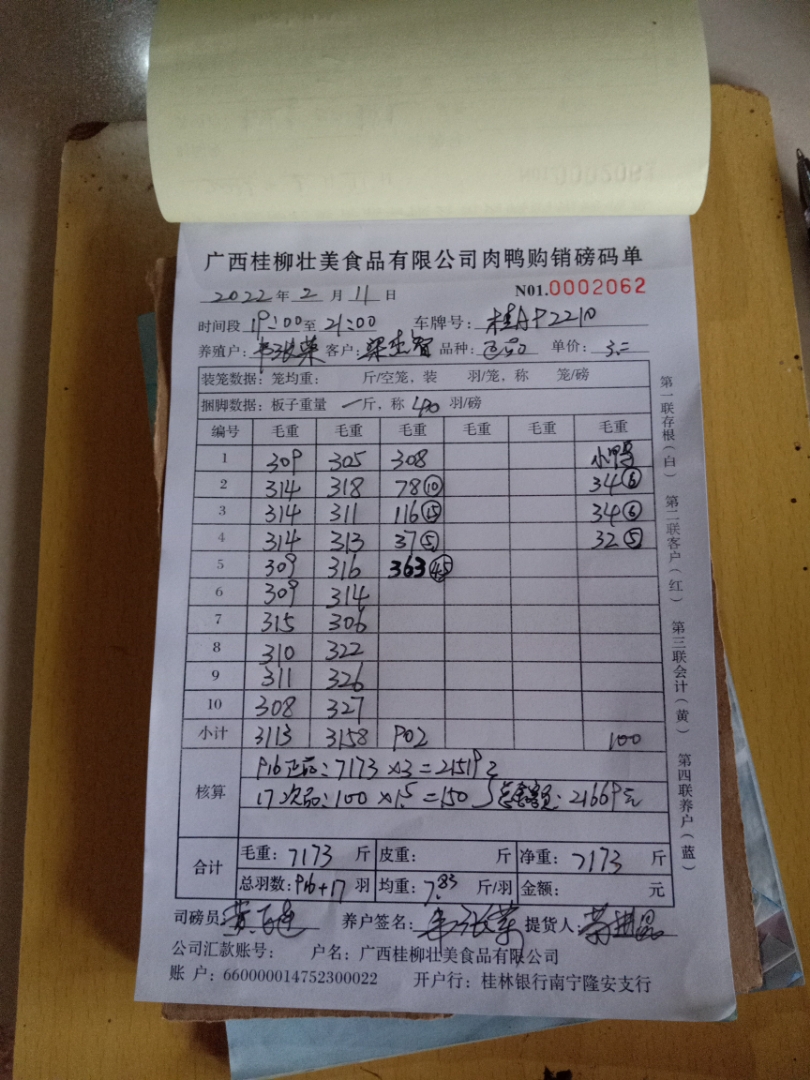 广西桂柳壮美食品有限公司肉鸭购销磅码单
2022年 2 月 11 日 N01.0002062
时间段 19:00 至 21:00 车牌号: 桂AP2210
养殖户: 客户: 品种: 正品 单价: 3.
装笼数据: 笼均重: 斤/空笼, 装 羽/笼, 称 笼/磅
捆脚数据: 板子重量 一 斤, 称 羽/磅
编号 毛重 毛重 毛重 毛重 毛重 毛重
1 309 305 308 小鸭
2 314 318 78⑩ 34⑥
3 314 311 116⑮ 34⑥
4 314 313 37⑤ 32⑤
5 309 316 363㊺
6 309 314
7 315 306
8 310 322
9 311 326
10 308 327
小计 3113 3158 902 100
核算 916正品: 7173 ×3=21519元
17次品: 100 ×1.5=150 总金额: 21669元
合计 毛重: 7173 斤 皮重: 斤 净重: 7173 斤
总羽数: 916+17 羽 均重: 7.83 斤/羽 金额: 元
司磅员: 养户签名: 提货人:
公司汇款账号: 户名: 广西桂柳壮美食品有限公司
账 户: 660000014752300022 开户行: 桂林银行南宁隆安支行
第一联存根(白) 第二联客户(红) 第三联会计(黄) 第四联养户(蓝)